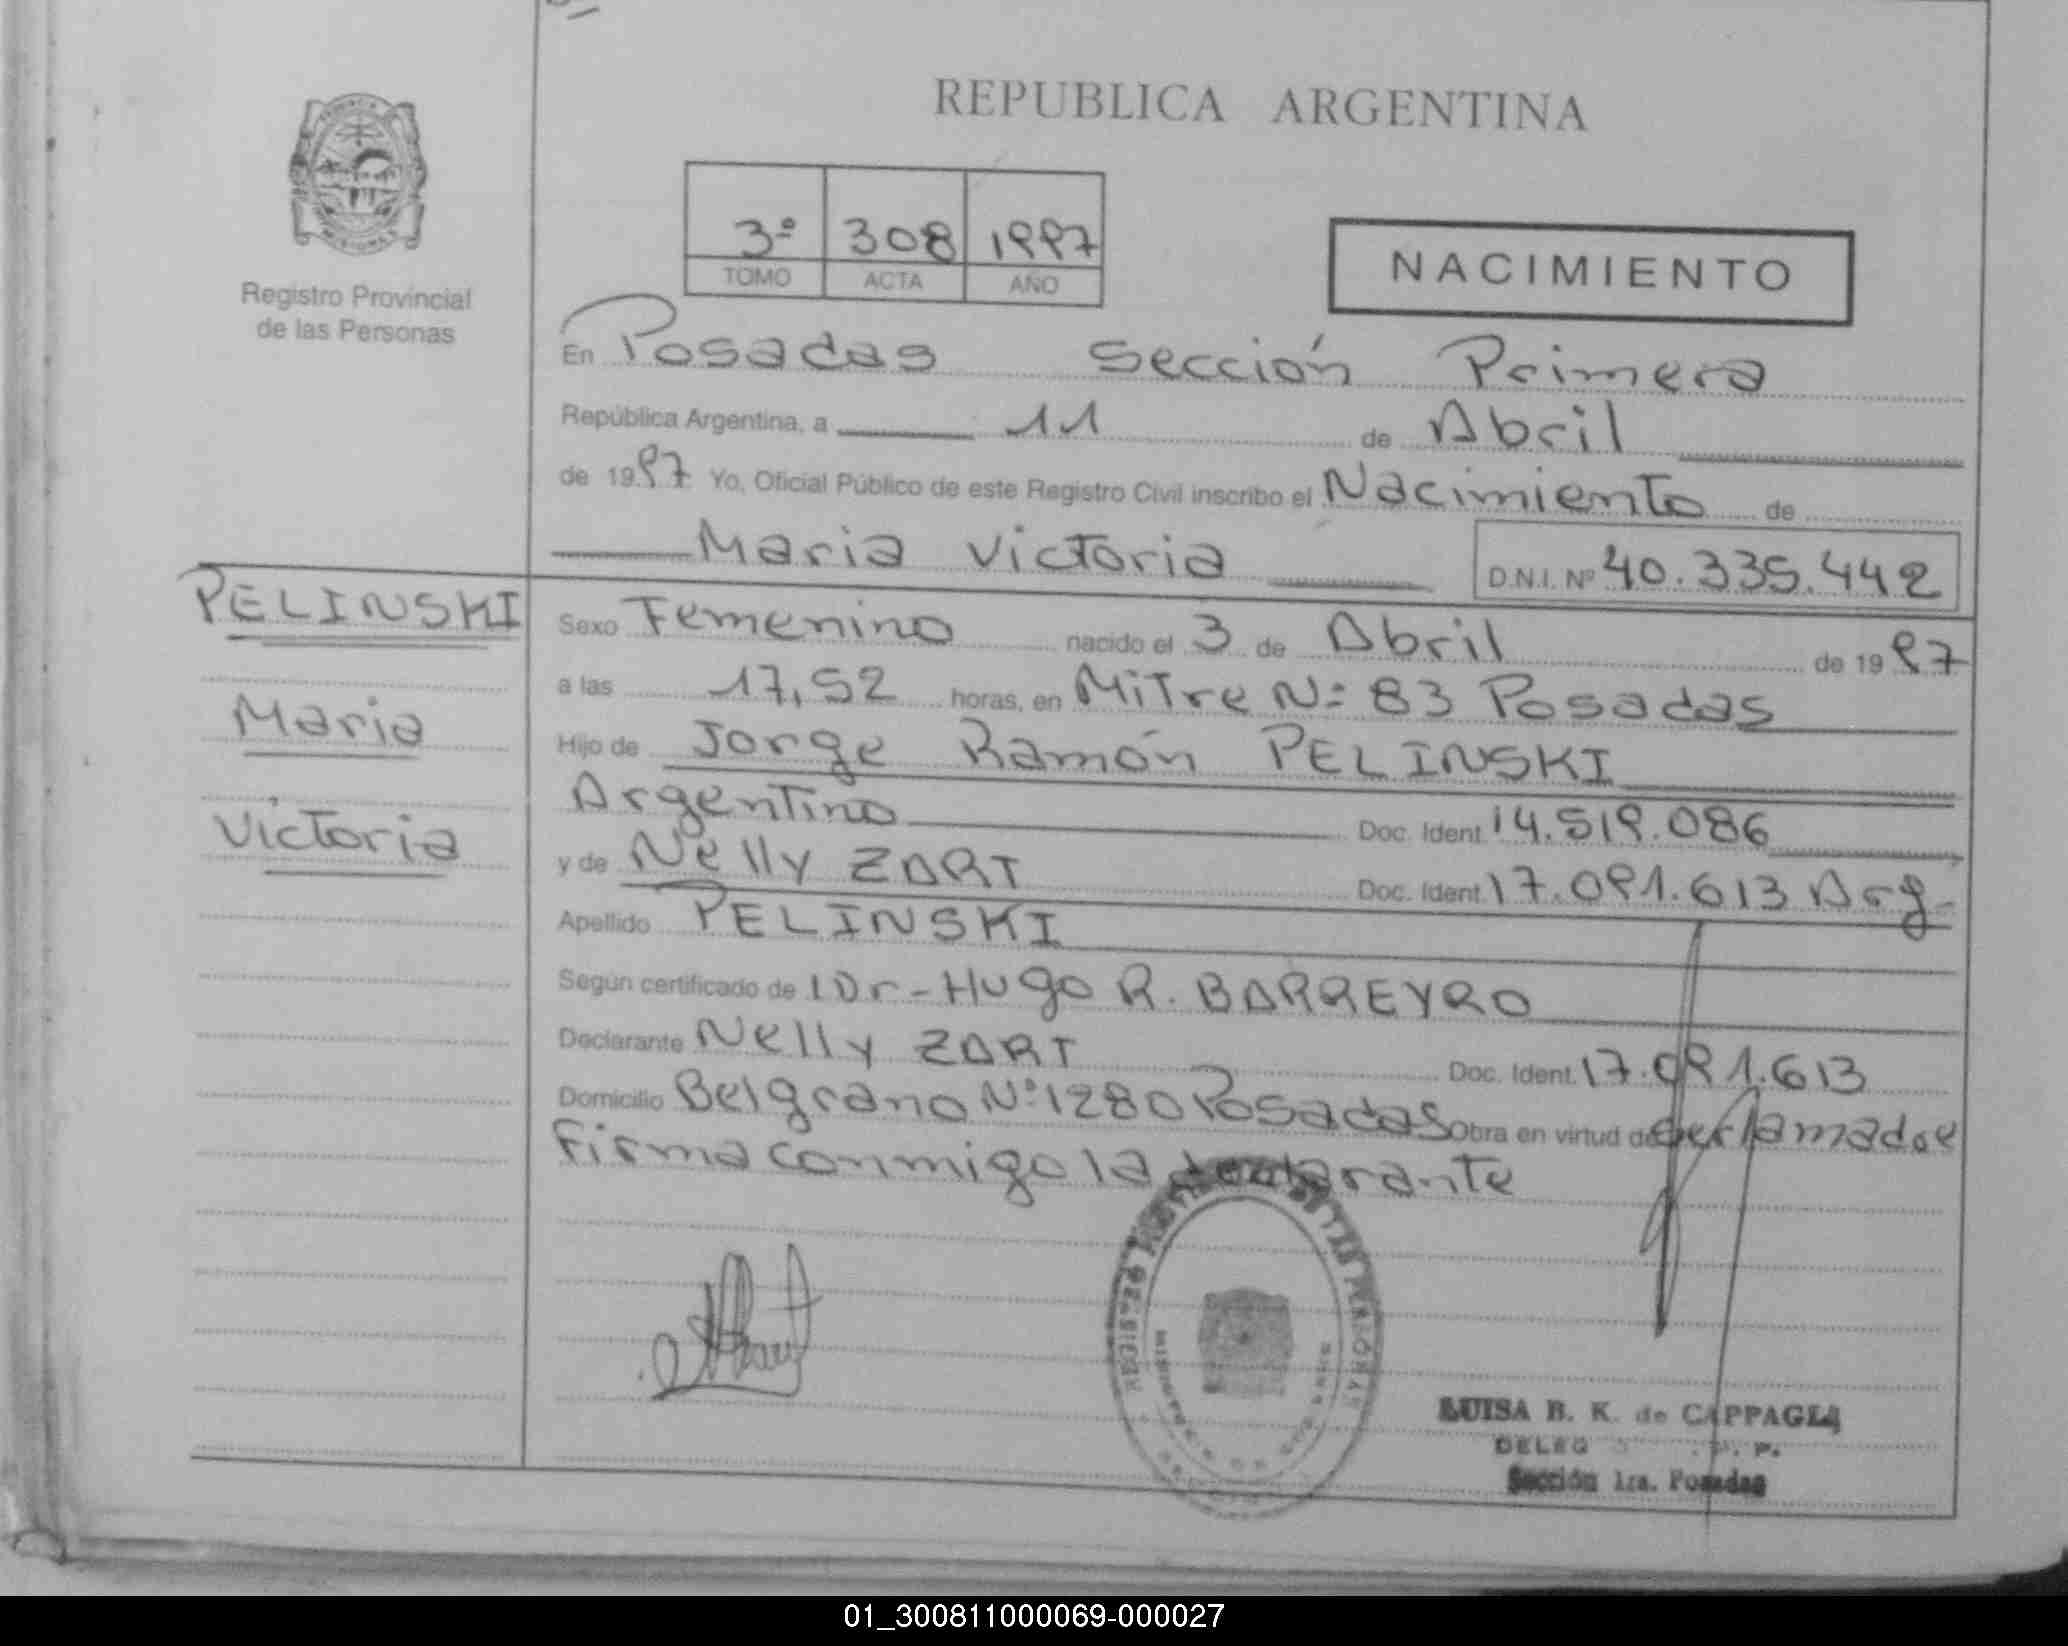 REPUBLICA ARGENTINA
3º 308 1997
TOMO ACTA AÑO
NACIMIENTO
Registro Provincial
de las Personas
En Posadas Sección Primera
República Argentina, a 11 de Abril
de 1997 Yo, Oficial Público de este Registro Civil inscribo el Nacimiento de
Maria Victoria D.N.I. Nº 40.335.442
PELINSKI
Maria
Victoria
Sexo Femenino nacido el 3 de Abril de 1997
a las 17,52 horas, en Mitre Nº 83 Posadas
Hijo de Jorge Ramón PELINSKI
Argentino Doc. Ident. 14.519.086
y de Nelly ZART Doc. Ident. 17.091.613 Arg.
Apellido PELINSKI
Según certificado de Dr-Hugo R. BARREYRO
Declarante Nelly ZART Doc. Ident. 17.091.613
Domicilio Belgrano Nº 1280 Posadas Obra en virtud de ser la madre
Firma conmigo la declarante
LUISA B. K. de CAPPAGLI
DELEG P.
Sección 1ra. Posadas
01_300811000069-000027